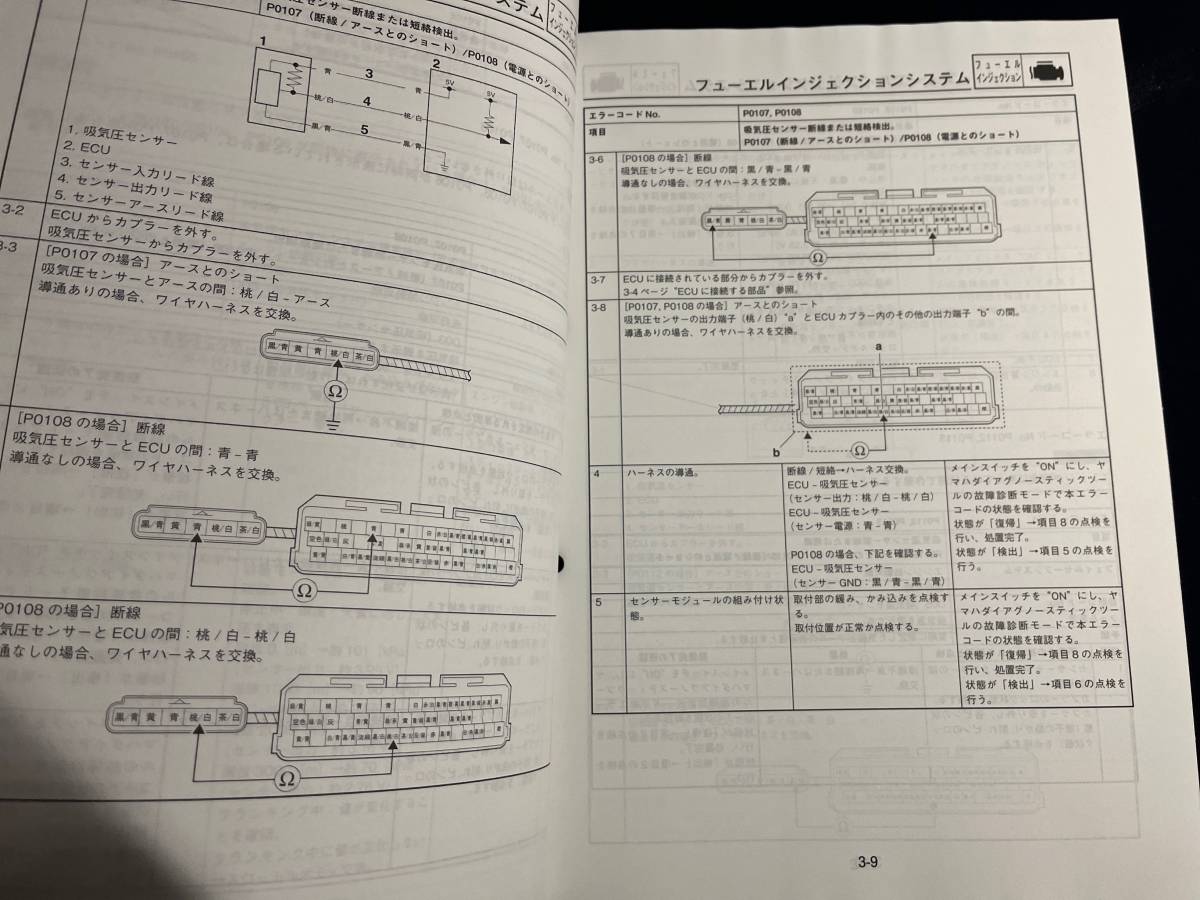 ステム
フューエル
インジェクション
圧センサー断線または短絡検出。
P0107（断線/アースとのショート）/P0108（電源とのショート）
1
2
3
4
5
青
青
桃/白
桃/白
黒/青
黒/青
5V
5V
1. 吸気圧センサー
2. ECU
3. センサー入力リード線
4. センサー出力リード線
5. センサーアースリード線
3-2
ECUからカプラーを外す。
吸気圧センサーからカプラーを外す。
3-3
[P0107の場合] アースとのショート
吸気圧センサーとアースの間：桃/白－アース
導通ありの場合、ワイヤハーネスを交換。
黒/青 黄 青 桃/白 茶/白
Ω
[P0108の場合] 断線
吸気圧センサーとECUの間：青－青
導通なしの場合、ワイヤハーネスを交換。
黒/青 黄 青 桃/白 茶/白
Ω
P0108の場合] 断線
気圧センサーとECUの間：桃/白－桃/白
通なしの場合、ワイヤハーネスを交換。
黒/青 黄 青 桃/白 茶/白
Ω
フューエルインジェクションシステム
フューエル
インジェクション
エラーコードNo.
P0107, P0108
項目
吸気圧センサー断線または短絡検出。
P0107（断線/アースとのショート）/P0108（電源とのショート）
3-6
[P0108の場合] 断線
吸気圧センサーとECUの間：黒/青－黒/青
導通なしの場合、ワイヤハーネスを交換。
黒/青 黄 青 桃/白 茶/白
Ω
3-7
ECUに接続されている部分からカプラーを外す。
3-4ページ“ECUに接続する部品”参照。
3-8
[P0107, P0108の場合] アースとのショート
吸気圧センサーの出力端子（桃/白）“a”とECUカプラー内のその他の出力端子“b”の間。
導通ありの場合、ワイヤハーネスを交換。
a
b
Ω
4
ハーネスの導通。
断線/短絡→ハーネス交換。
ECU－吸気圧センサー
（センサー出力：桃/白－桃/白）
ECU－吸気圧センサー
（センサー電源：青－青）
P0108の場合、下記を確認する。
ECU－吸気圧センサー
（センサーGND：黒/青－黒/青）
メインスイッチを“ON”にし、ヤ
マハダイアグノースティックツー
ルの故障診断モードで本エラー
コードの状態を確認する。
状態が「復帰」→項目8の点検を
行い、処置完了。
状態が「検出」→項目5の点検を
行う。
5
センサーモジュールの組み付け状
態。
取付部の緩み、かみ込みを点検す
る。
取付位置が正常か点検する。
メインスイッチを“ON”にし、ヤ
マハダイアグノースティックツー
ルの故障診断モードで本エラー
コードの状態を確認する。
状態が「復帰」→項目8の点検を
行い、処置完了。
状態が「検出」→項目6の点検を
行う。
3-9